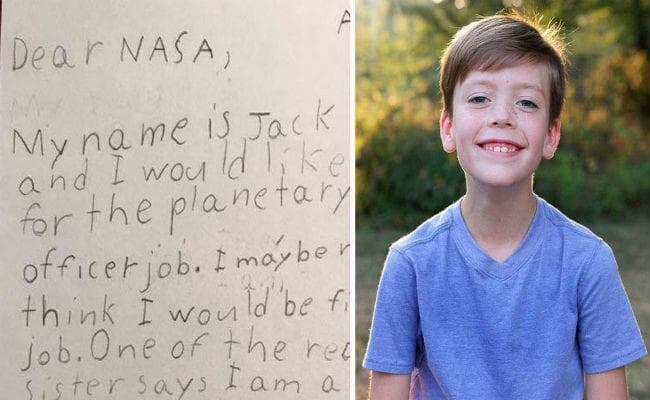 Dear NASA,
My name is Jack
and I would like
for the planetary
officer job. I maybe
think I would be fi
job. One of the
sister says I am a